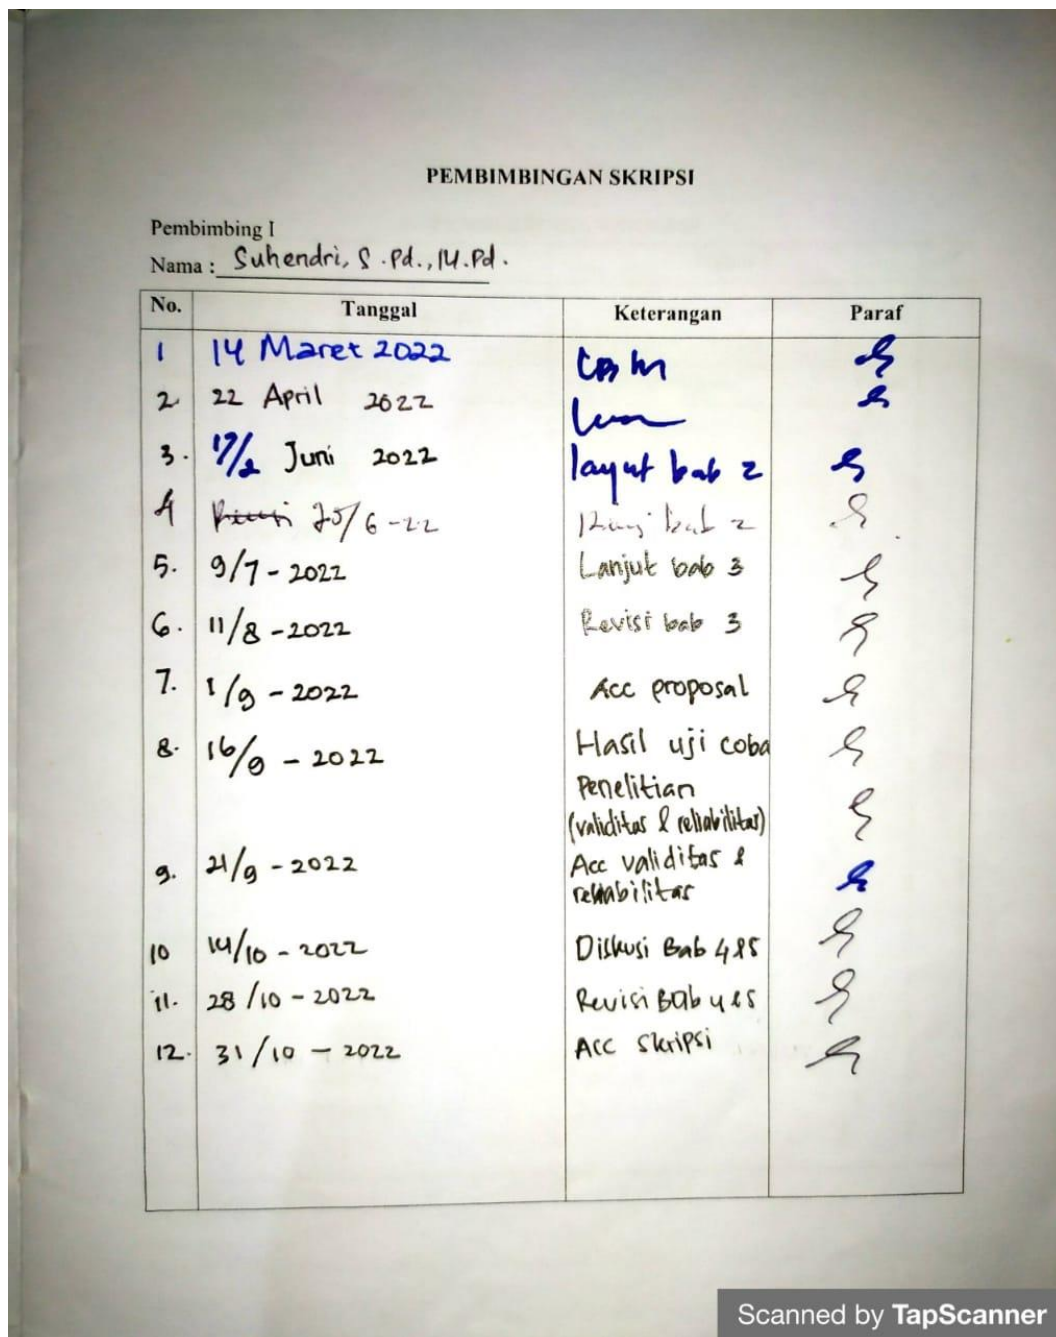 PEMBIMBINGAN SKRIPSI
Pembimbing I
Nama : Suhendri, S.Pd., M.Pd.
No. Tanggal Keterangan Paraf
1 14 Maret 2022
2. 22 April 2022
3. Juni 2022 layut bab 2
4 25/6-22 bab 2
5. 9/7-2022 Lanjut bab 3
6. 11/8-2022 Revisi bab 3
7. 1/9-2022 Acc proposal
8. 16/9-2022 Hasil uji coba
Penelitian
(validitas & reliabilitas)
9. 21/9-2022 Acc validitas &
reliabilitas
10 14/10-2022 Diskusi Bab 4&5
11. 28/10-2022 Revisi Bab 4&5
12. 31/10-2022 Acc Skripsi
Scanned by TapScanner